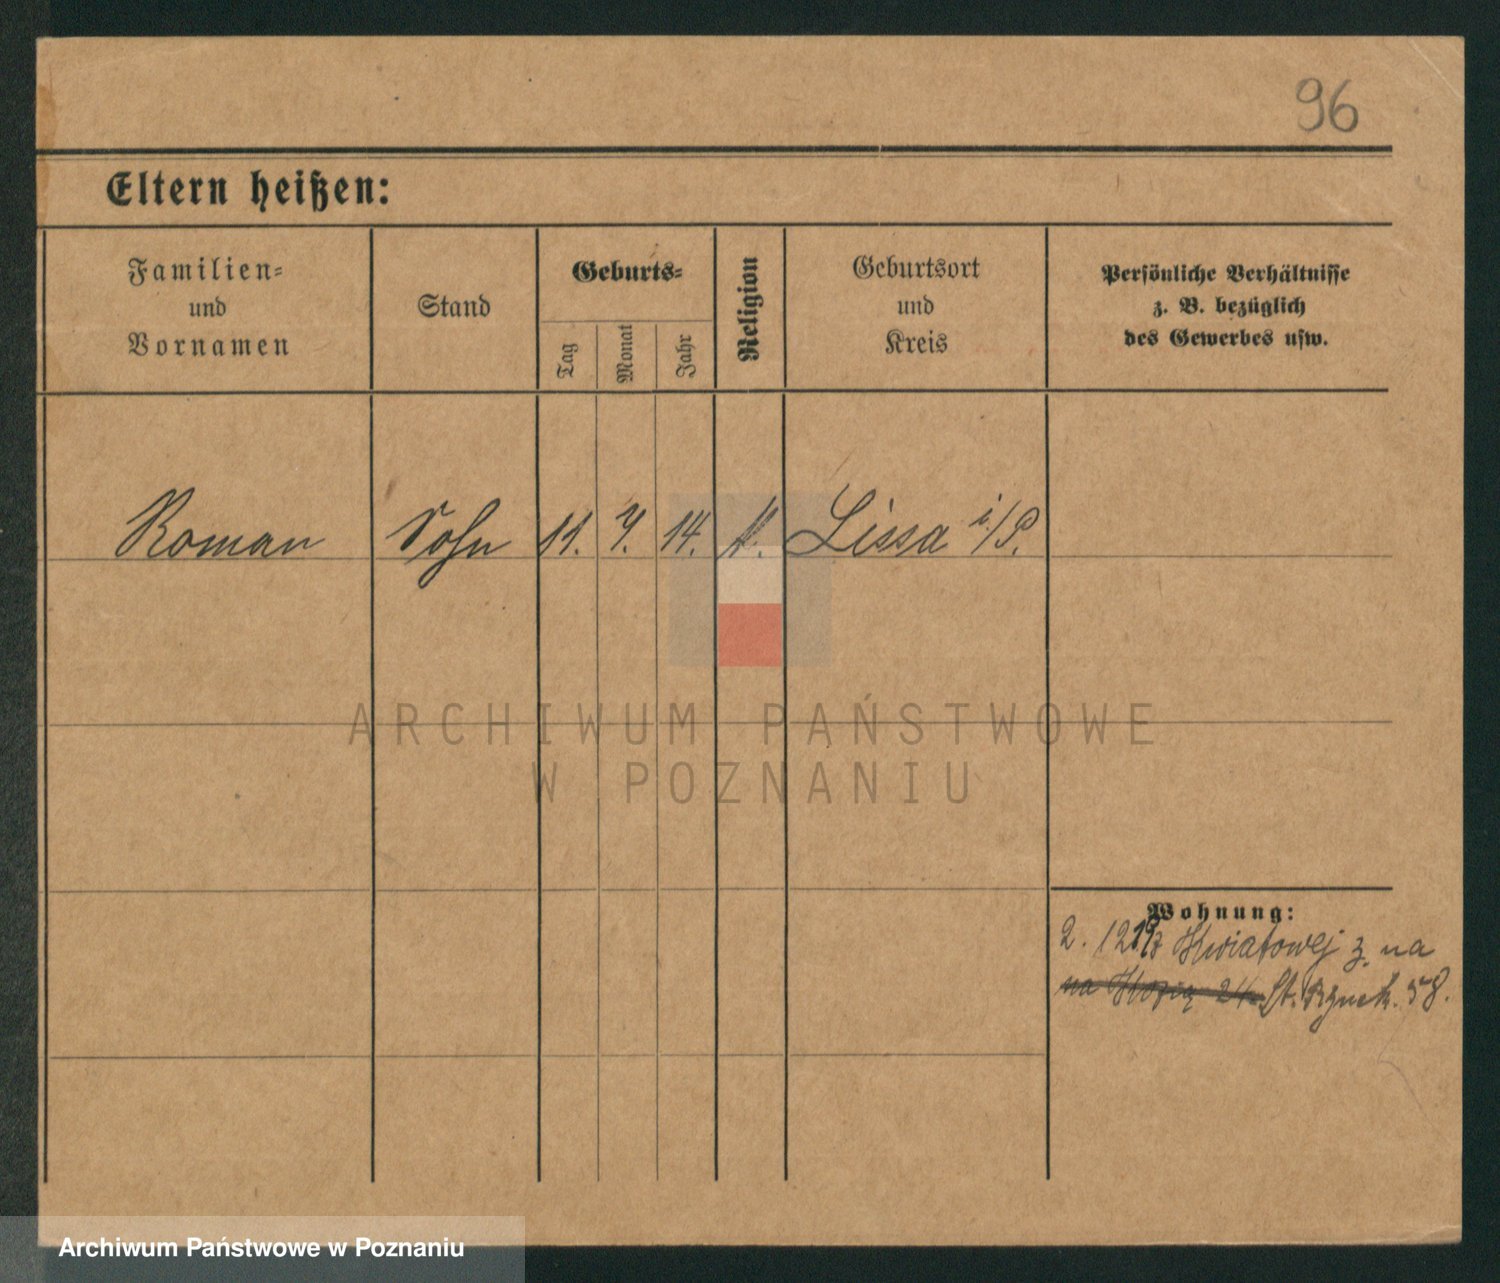 96
Eltern heißen:
Familien-
und
Vornamen
Stand
Geburts-
Tag
Monat
Jahr
Religion
Geburtsort
und
Kreis
Persönliche Verhältnisse
z. B. bezüglich
des Gewerbes usw.
Roman Sohn 11. 7. 14. K. Lissa i/P.
ARCHIWUM PAŃSTWOWE
W POZNANIU
Wohnung:
2. 12 Kwiatowej 3. na
na Kozią 24 St. Rynek. 58.
Archiwum Państwowe w Poznaniu